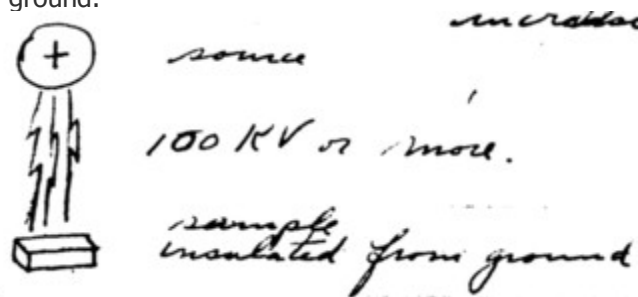 ground.
+ source
100 KV or more.
sample
insulated from ground